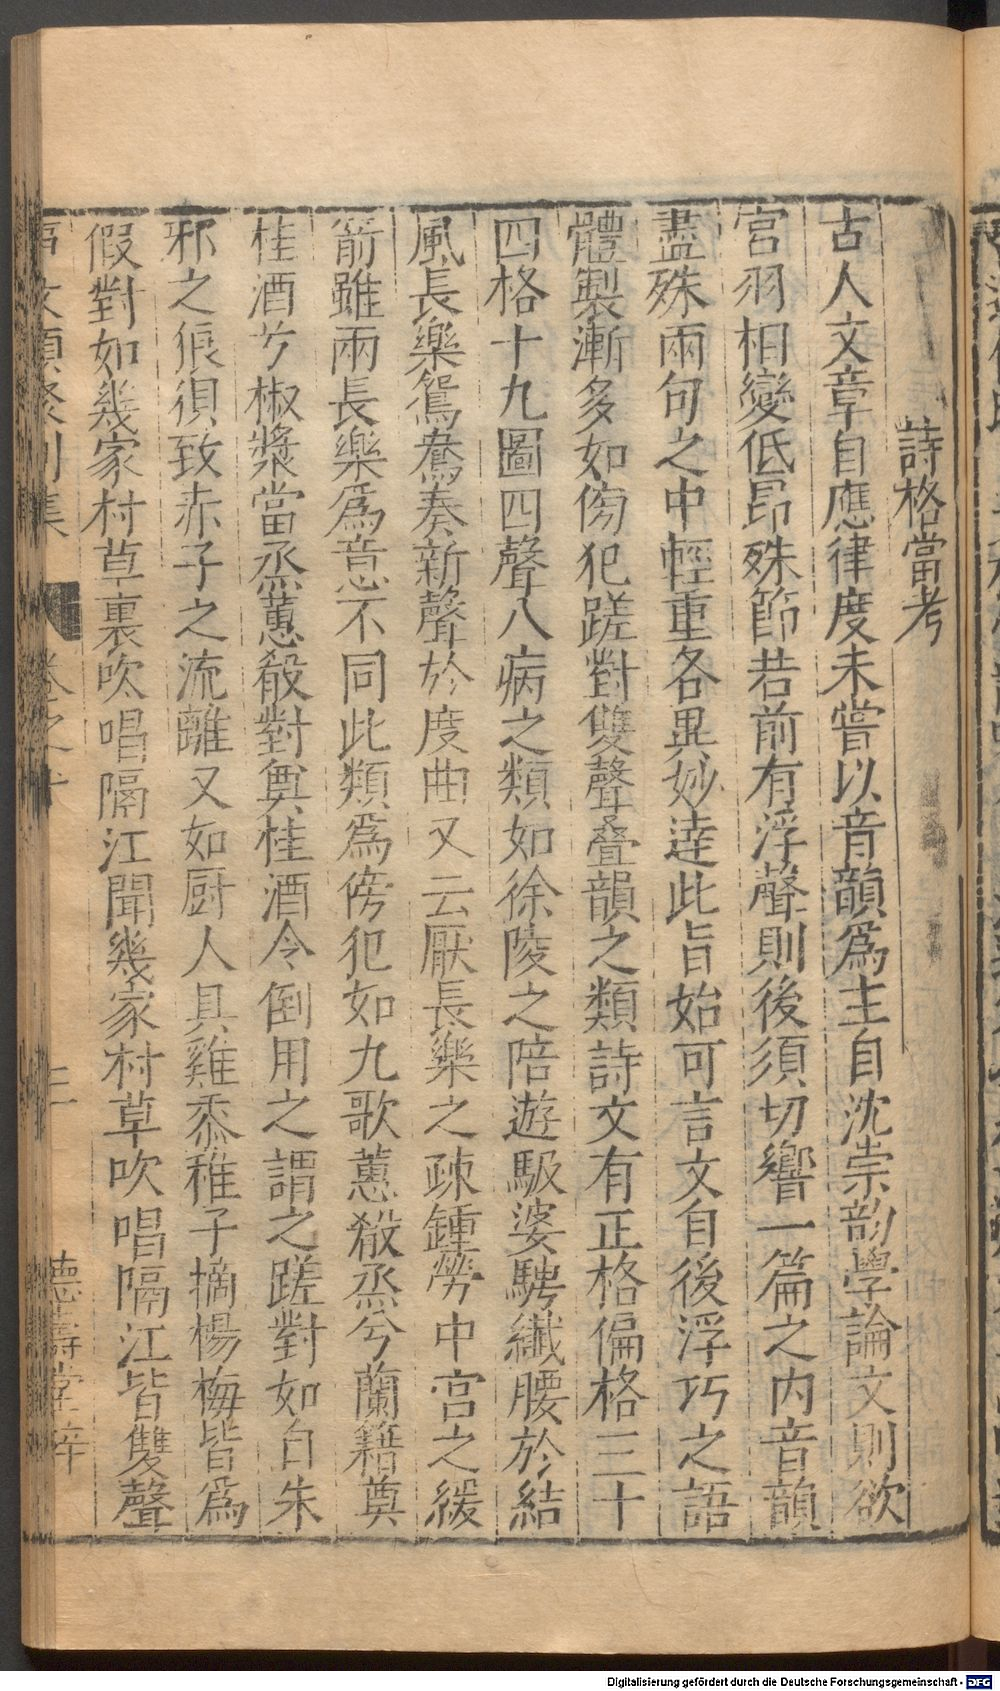 詩格當考
古人文章自應律度未嘗以音韻爲主自沈崇韵學論文則欲
宫羽相變低昂殊節若前有浮聲則後須切響一篇之内音韻
盡殊兩句之中輕重各異妙達此旨始可言文自後浮巧之語
體製漸多如傍犯蹉對雙聲疊韻之類詩文有正格偏格三十
四格十九圖四聲八病之類如徐陵之陪遊馺娑騁纎腰於結
風長樂鴛鴦奏新聲於度曲又云厭長樂之疎鍾勞中宫之緩
箭雖兩長樂爲意不同此類爲傍犯如九歌蕙殽烝兮蘭籍奠
桂酒兮椒漿當烝蕙殽對奠桂酒今倒用之謂之蹉對如自朱
邪之狼狽致赤子之流離又如厨人具雞黍稚子摘楊梅皆爲
假對如幾家村草裏吹唱隔江聞幾家村草吹唱隔江皆雙聲
事文類聚别集
卷之十
德壽堂梓
Digitalisierung gefördert durch die Deutsche Forschungsgemeinschaft - DFG